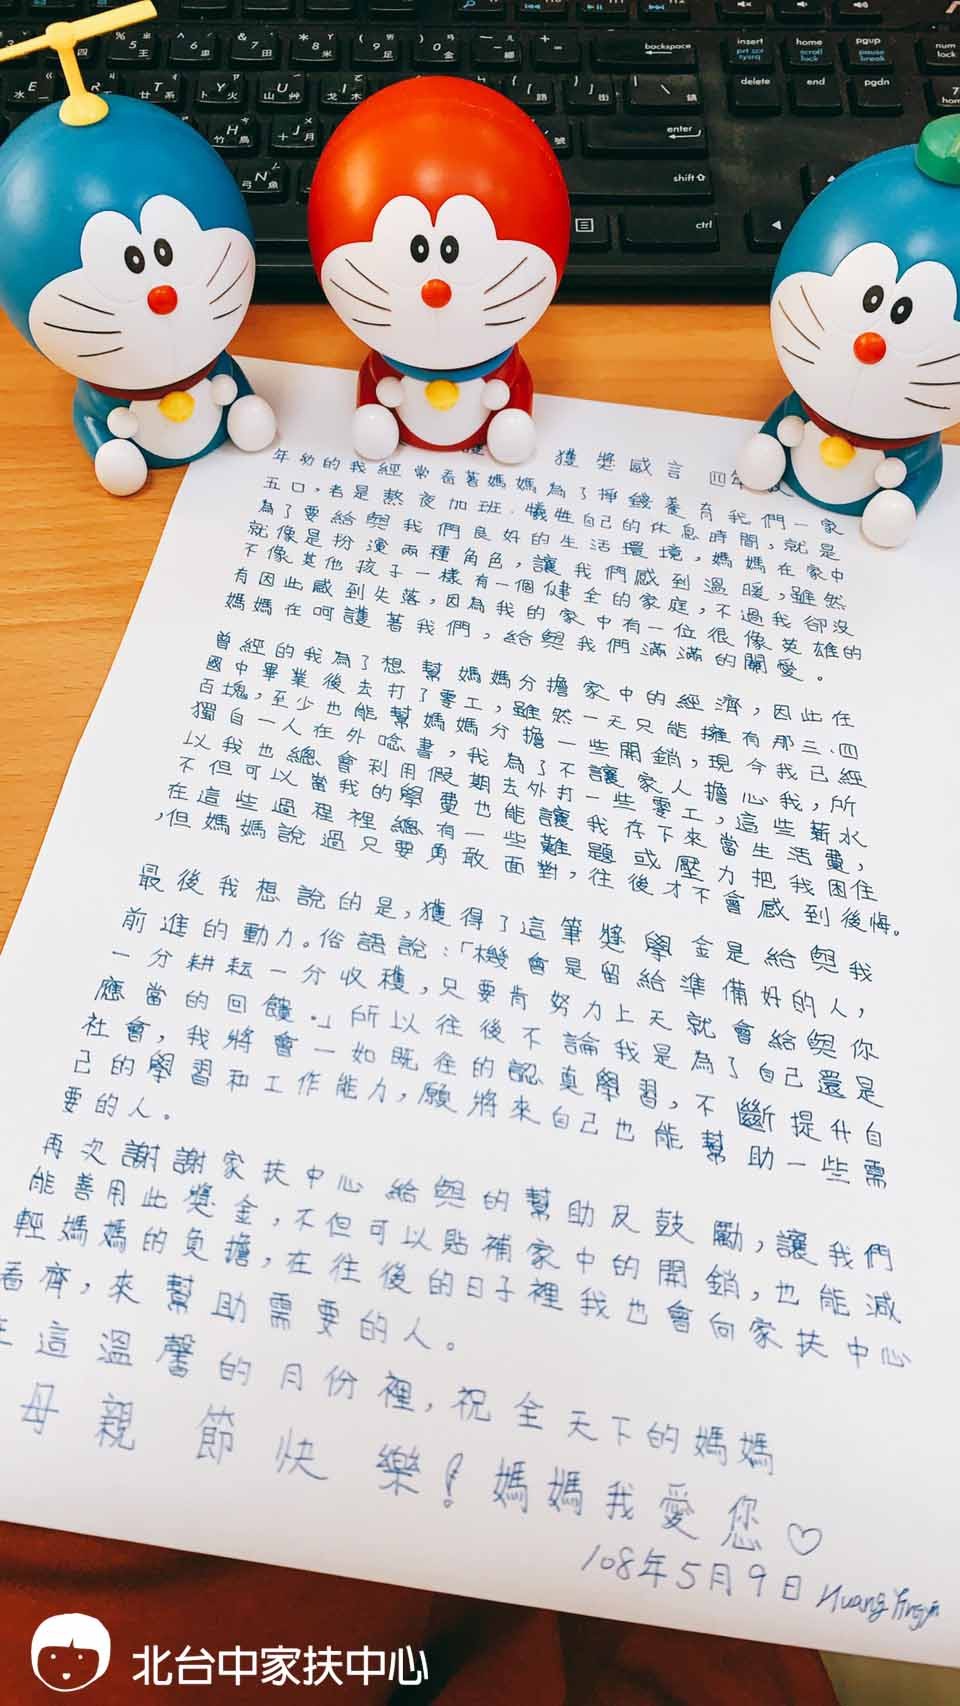 獲獎感言 四年
年幼的我經常看著媽媽為了掙錢養育我們一家
五口,老是熬夜加班、犧牲自己的休息時間,就是
為了要給與我們良好的生活環境,媽媽在家中
就像是扮演兩種角色,讓我們感到溫暖,雖然
不像其他孩子一樣有一個健全的家庭,不過我卻沒
有因此感到失落,因為我的家中有一位很像英雄的
媽媽在呵護著我們,給與我們滿滿的關愛。
曾經的我為了想幫媽媽分擔家中的經濟,因此在
國中畢業後去打了零工,雖然一天只能擁有那三、四
百塊,至少也能幫媽媽分擔一些開銷,現今我已經
獨自一人在外唸書,我為了不讓家人擔心我,所
以我也總會利用假期去外打一些零工,這些薪水
不但可以當我的學費也能讓我存下來當生活費,
在這些過程裡總有一些難題或壓力把我困住
,但媽媽說過只要勇敢面對,往後才不會感到後悔。
最後我想說的是,獲得了這筆獎學金是給與我
前進的動力。俗語說:「機會是留給準備好的人,
一分耕耘一分收穫,只要肯努力上天就會給與你
應當的回饋。」所以往後不論我是為了自己還是
社會,我將會一如既往的認真學習,不斷提升自
己的學習和工作能力,願將來自己也能幫助一些需
要的人。
再次謝謝家扶中心給與的幫助及鼓勵,讓我們
能善用此獎金,不但可以貼補家中的開銷,也能減
輕媽媽的負擔,在往後的日子裡我也會向家扶中心
看齊,來幫助需要的人。
在這溫馨的月份裡,祝全天下的媽媽
母親節快樂!媽媽我愛您♡
108年5月9日 Huang
北台中家扶中心